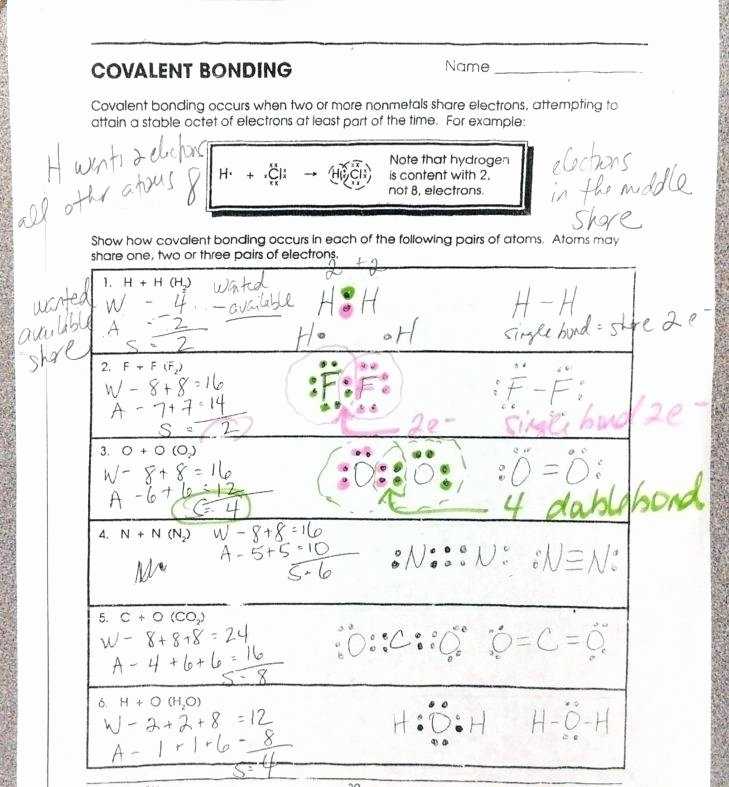 COVALENT BONDING
Name
Covalent bonding occurs when two or more nonmetals share electrons, attempting to
attain a stable octet of electrons at least part of the time. For example:
H wants 2 electrons
all other atoms 8
H· + Cl → H Cl
Note that hydrogen
is content with 2,
not 8, electrons.
electrons
in the middle
share
Show how covalent bonding occurs in each of the following pairs of atoms. Atoms may
share one, two or three pairs of electrons.
2 + 2
wanted
available
share
1. H + H (H₂)
W - 4
A - 2
S = 2
wanted
- available
H : H
H· ·H
H - H
single bond = share 2 e⁻
2. F + F (F₂)
W - 8 + 8 = 16
A - 7 + 7 = 14
S = 2
F F
2e-
F - F
single bond 2e-
3. O + O (O₂)
W - 8 + 8 = 16
A - 6 + 6 = 12
= 4
O O
O = O
4 dablebond
4. N + N (N₂)
W - 8 + 8 = 16
A - 5 + 5 = 10
S - 6
:N:::N:
:N≡N:
5. C + O (CO₂)
W - 8 + 8 + 8 = 24
A - 4 + 6 + 6 = 16
S - 8
O::C::O
O=C=O
6. H + O (H₂O)
W - 2 + 2 + 8 = 12
A - 1 + 1 + 6 - 8
S = 4
H:O:H
H-O-H